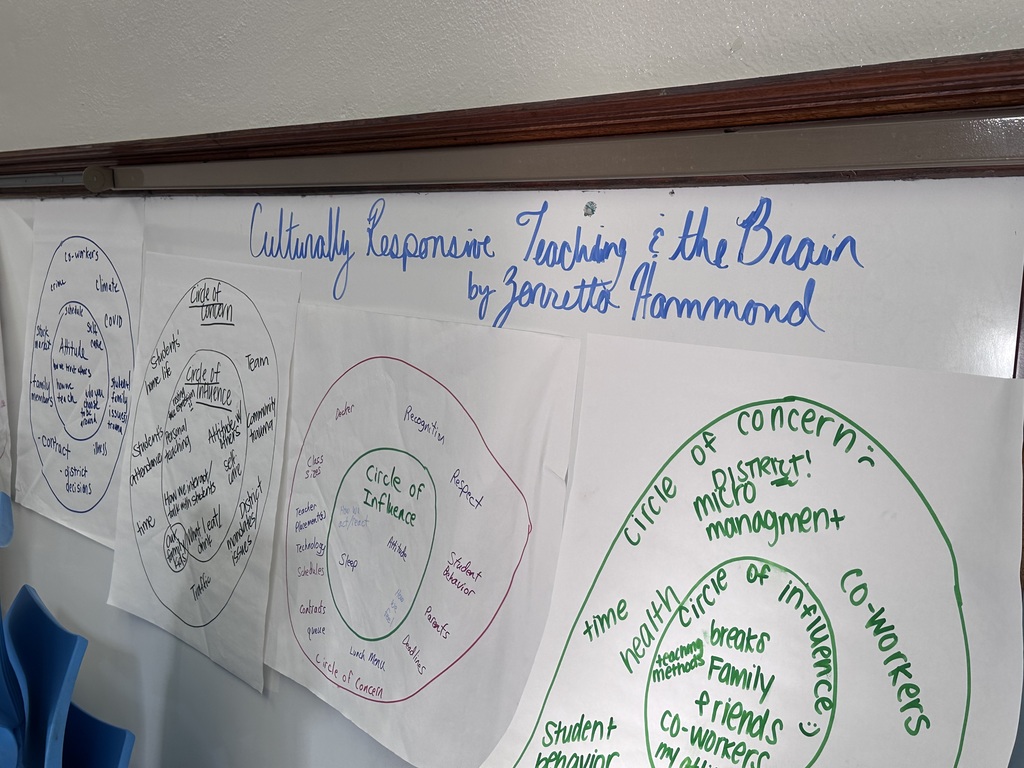 Culturally Responsive Teaching & the Brain
by Zenretta Hammond
co-workers
crime
climate
schedule
COVID
stock
market
self
care
Attitude
how we
teach
family
members
student/
family
issues/
trauma
-contract
illness
-district
decisions
Circle of
Concern
Students'
home life
Team
Circle of
Influence
Students'
Attendance
Personal
teaching
Attitude w/
others
Community
trauma
self
care
How we interact/
talk with students
time
our
family
What I eat/
drink
District
mandates/
issues
Traffic
Recognition
Class
sizes
Circle of
Influence
Respect
Teacher
Placement
Technology
Schedules
Attitude
Sleep
Student
Behavior
Contracts
queue
Parents
Deadlines
Lunch Menu
Circle of Concern
circle of concern :(
DISTRICT!
micro
managment
time
health
co-workers
circle of influence :)
breaks
teaching
methods
Family
friends
co-workers
Student
behavior